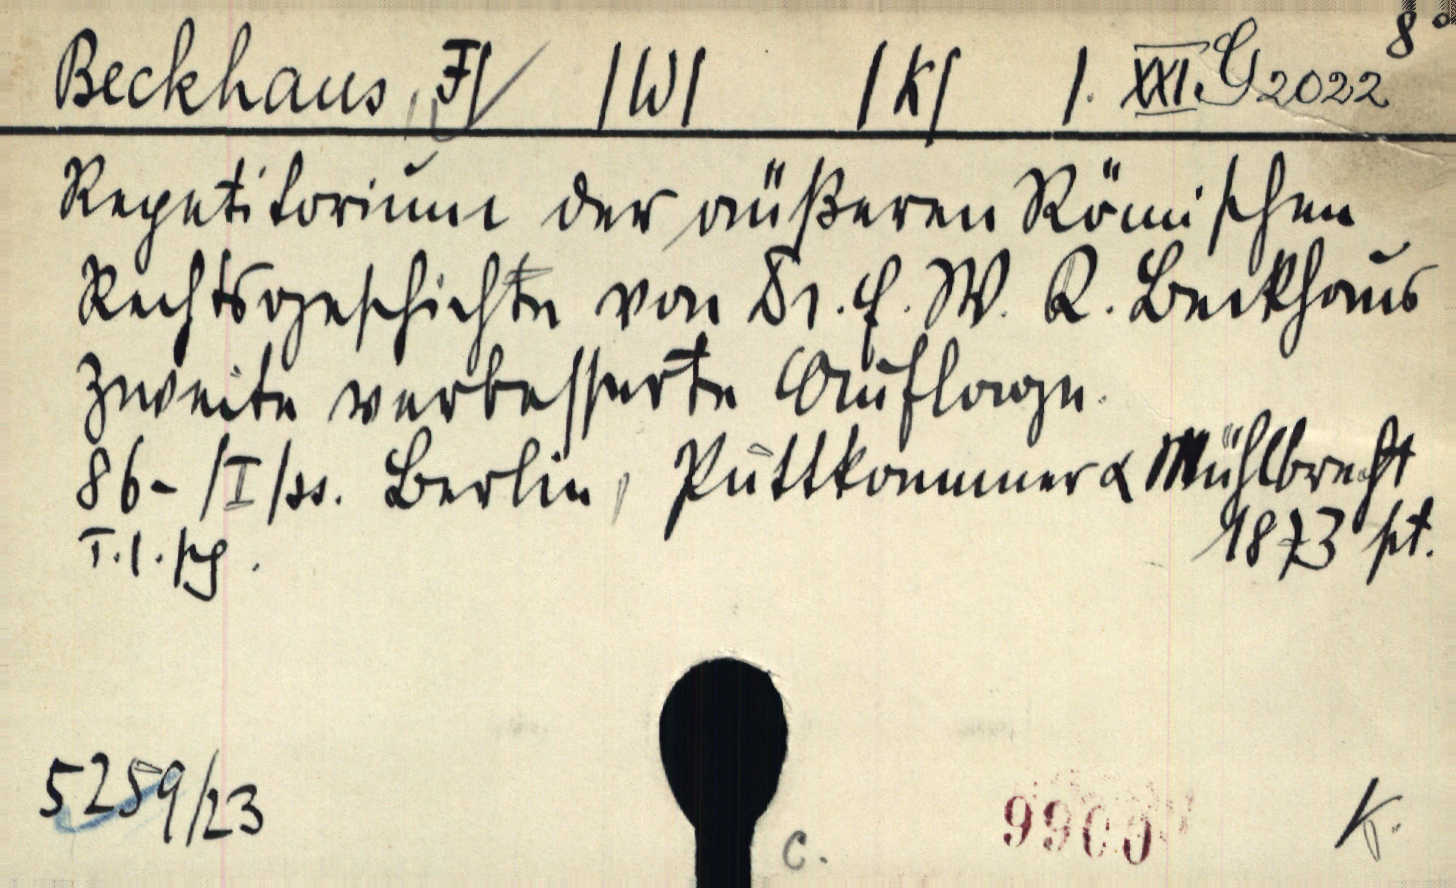 Beckhaus, F/ /W/ /K/ 1. XXI. G 2022 8°
Repetitorium der äußeren Römischen
Rechtsgeschichte von Dr. F. W. K. Beckhaus
Zweite verbesserte Auflage.
86- /I/ss. Berlin, Puttkammer & Mühlbrecht
1873 pt.
T. 1.
5259/23
9900
K.
C.